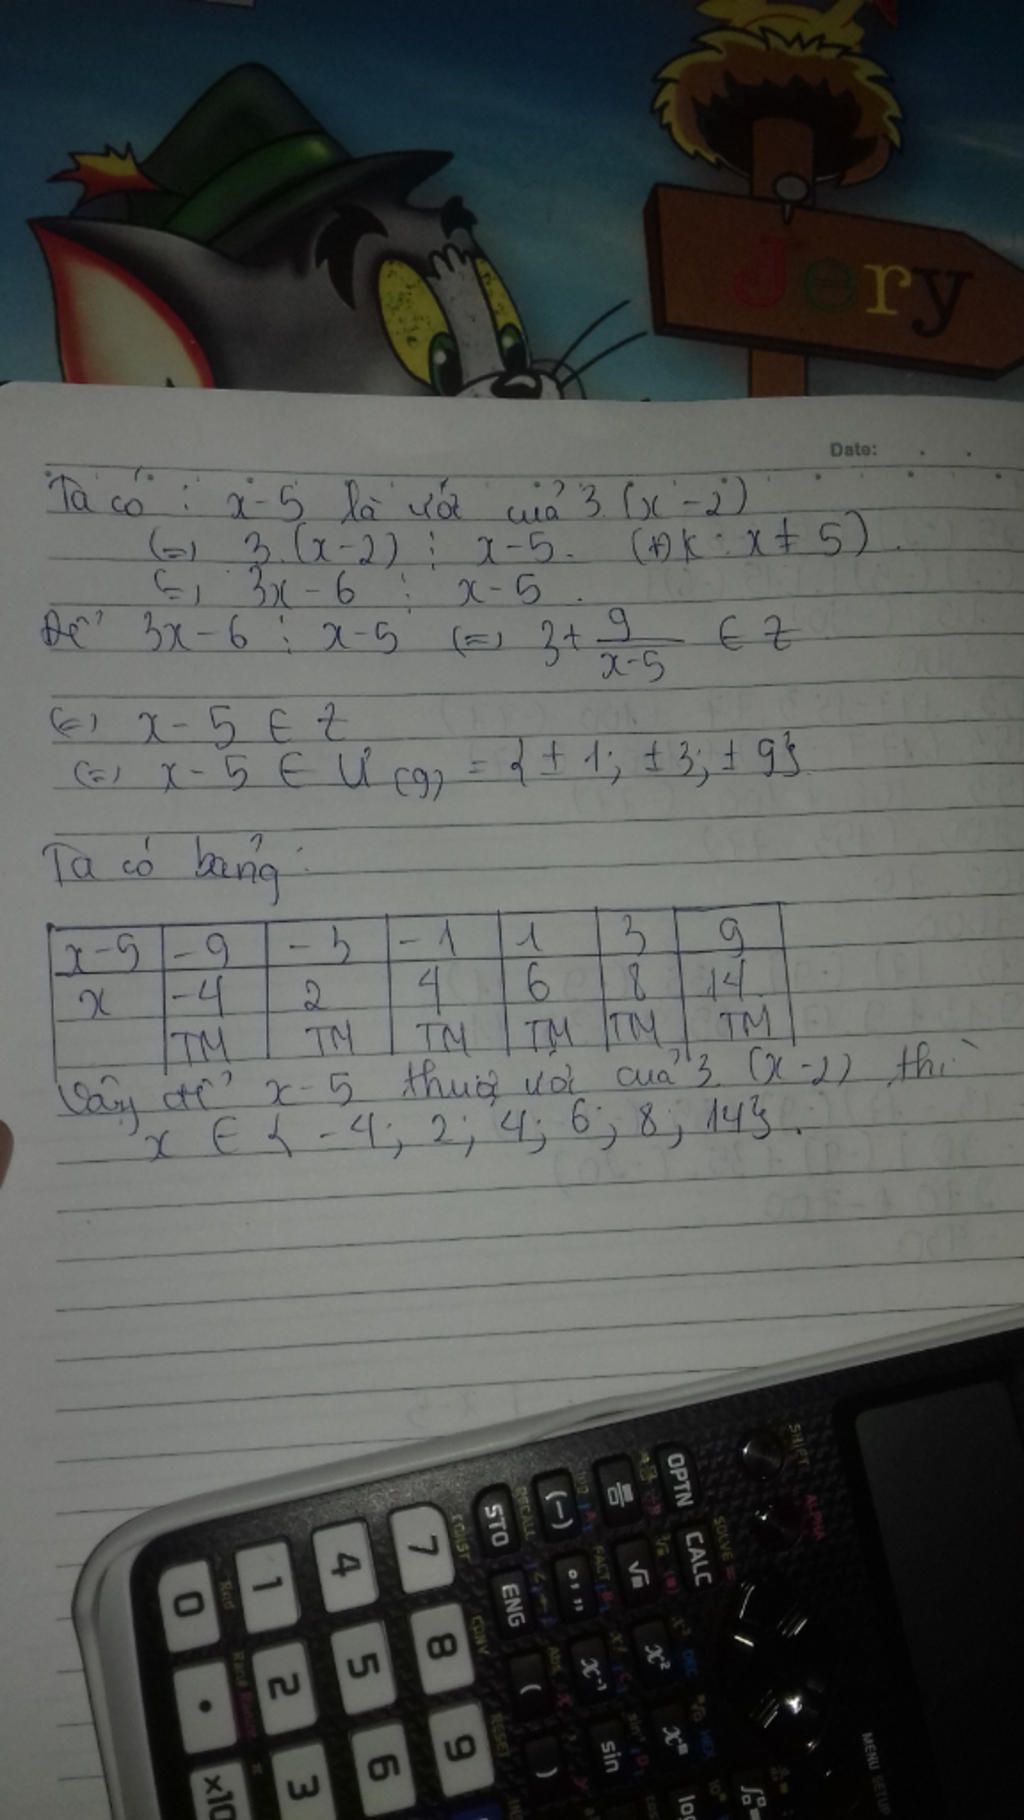 Jery
Date:
Ta có : x-5 là ước của 3.(x-2)
(=) 3.(x-2) ⋮ x-5. (ĐK: x≠5).
(=) 3x-6 ⋮ x-5.
Để 3x-6 ⋮ x-5 (=) 3+ 9/(x-5) ∈ Z
(=) x-5 ∈ Z
(=) x-5 ∈ Ư(9) = {±1; ±3; ±9}
Ta có bảng:
x-5 -9 -3 -1 1 3 9
x -4 2 4 6 8 14
TM TM TM TM TM TM
Vậy để x-5 thuộc ước của 3.(x-2) thì
x ∈ { -4; 2; 4; 6; 8; 14}.
SHIFT ALPHA MENU SETUP
OPTN CALC SOLVE =
√ x² x
STO ENG (-) °,,, x⁻¹ sin log
RECALL FACT Abs
( )
7 8 9
CONST CONV RESET
4 5 6
1 2 3
0 . ×10
Rnd Ran# π